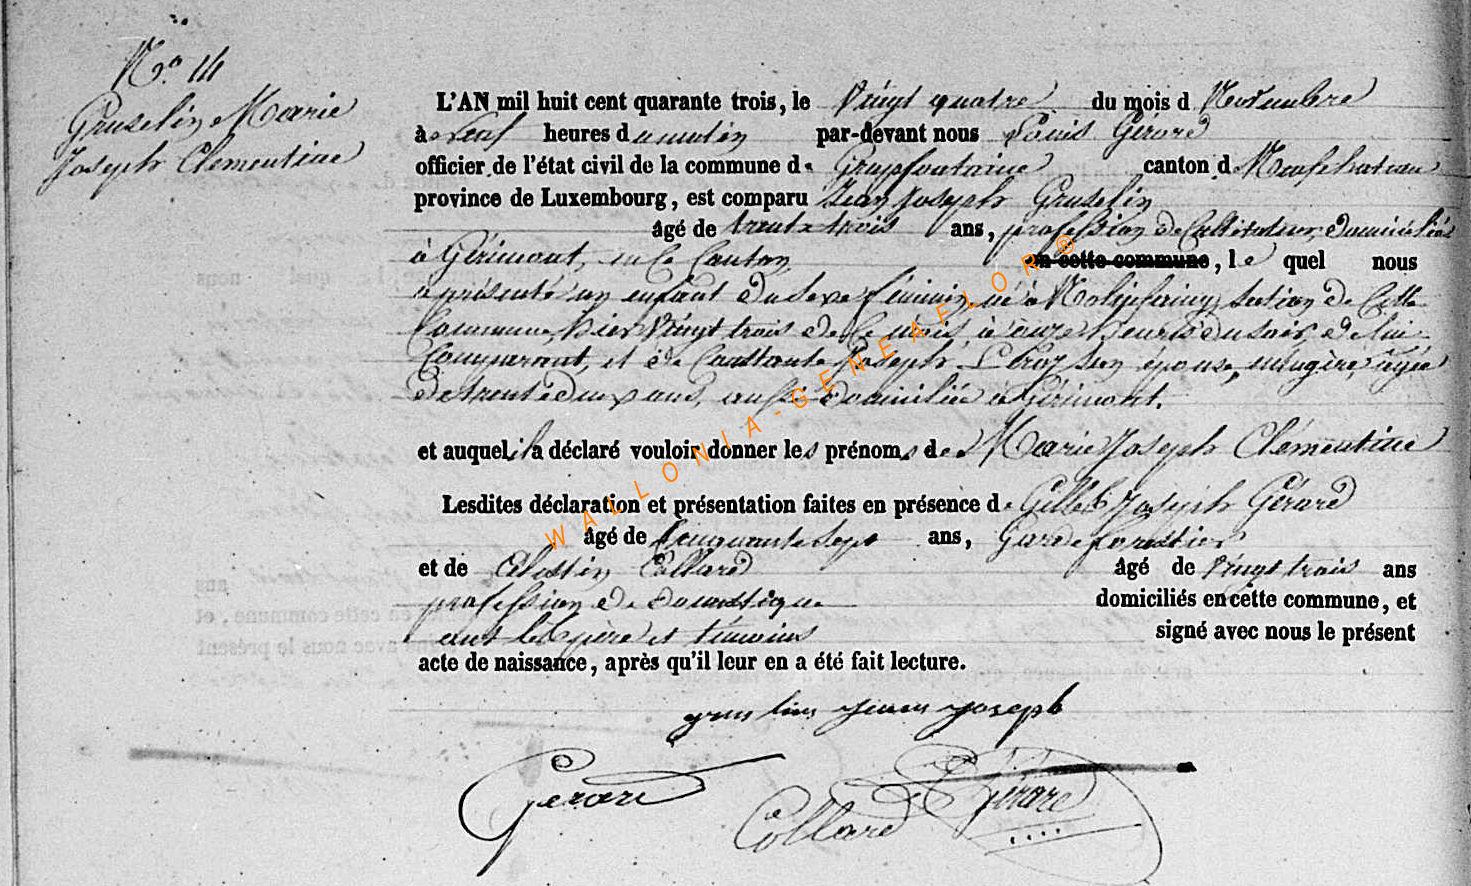 N.o 14
Gruselin Marie
Joseph Clementine
L'AN mil huit cent quarante trois, le Vingt quatre du mois d Novembre
à neuf heures du matin par-devant nous Louis Gérard
officier de l'état civil de la commune de Grapfontaine canton de Neufchateau
province de Luxembourg, est comparu Jean Joseph Gruselin
âgé de trente trois ans, profession de Cultivateur, domicilié
à Gérimont, en ce Canton, en cette commune, le quel nous
a présenté un enfant du sexe féminin, né à Molinfaing, section de Cette
Commune, hier vingt trois de ce mois, à onze heures du soir, de lui
Comparant, et de Constante Joseph Leroy son épouse, ménagère, agée
de trente deux ans, aussi domiciliée à Gérimont.
et auquel il a déclaré vouloir donner les prénoms de Marie Joseph Clémentine
Lesdites déclaration et présentation faites en présence de Gilles Joseph Gérard
âgé de Cinquante sept ans, Garde forestier
et de Célestin Collard âgé de Vingt trois ans
profession de domestique domiciliés en cette commune, et
ont les père et témoins signé avec nous le présent
acte de naissance, après qu'il leur en a été fait lecture.
grus lins jean joseph
Gerard Collard Gérard
WALLONIA-GENEAELOR®